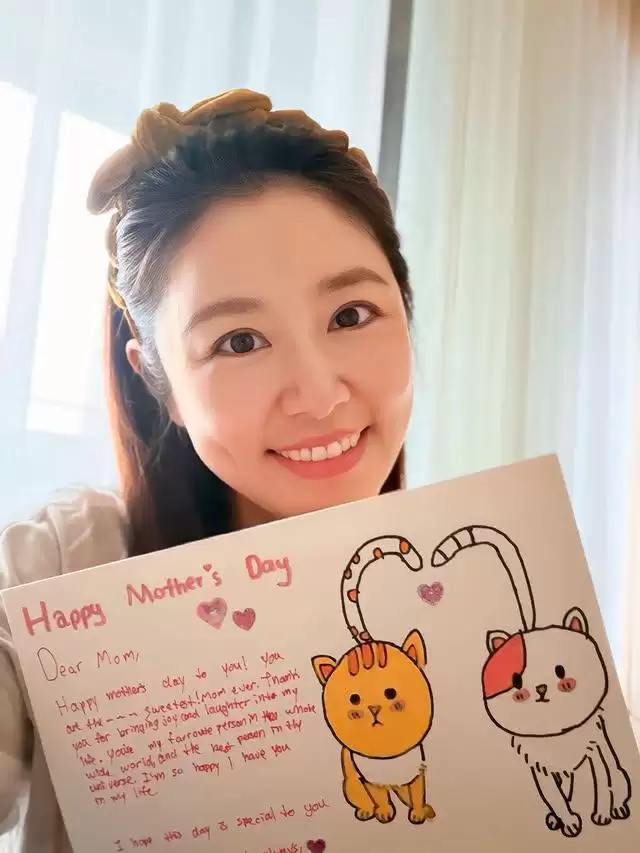 Happy Mother's Day
Dear Mom,
Happy mothers day to you! you
are the ---- sweetest! Mom ever. Thank
you for bringing joy and laughter into my
life. You're my favroute person in the whole
wide world, and the best person in the
universe. I'm so happy I have you
in my life
I hope this day is special to you
always,